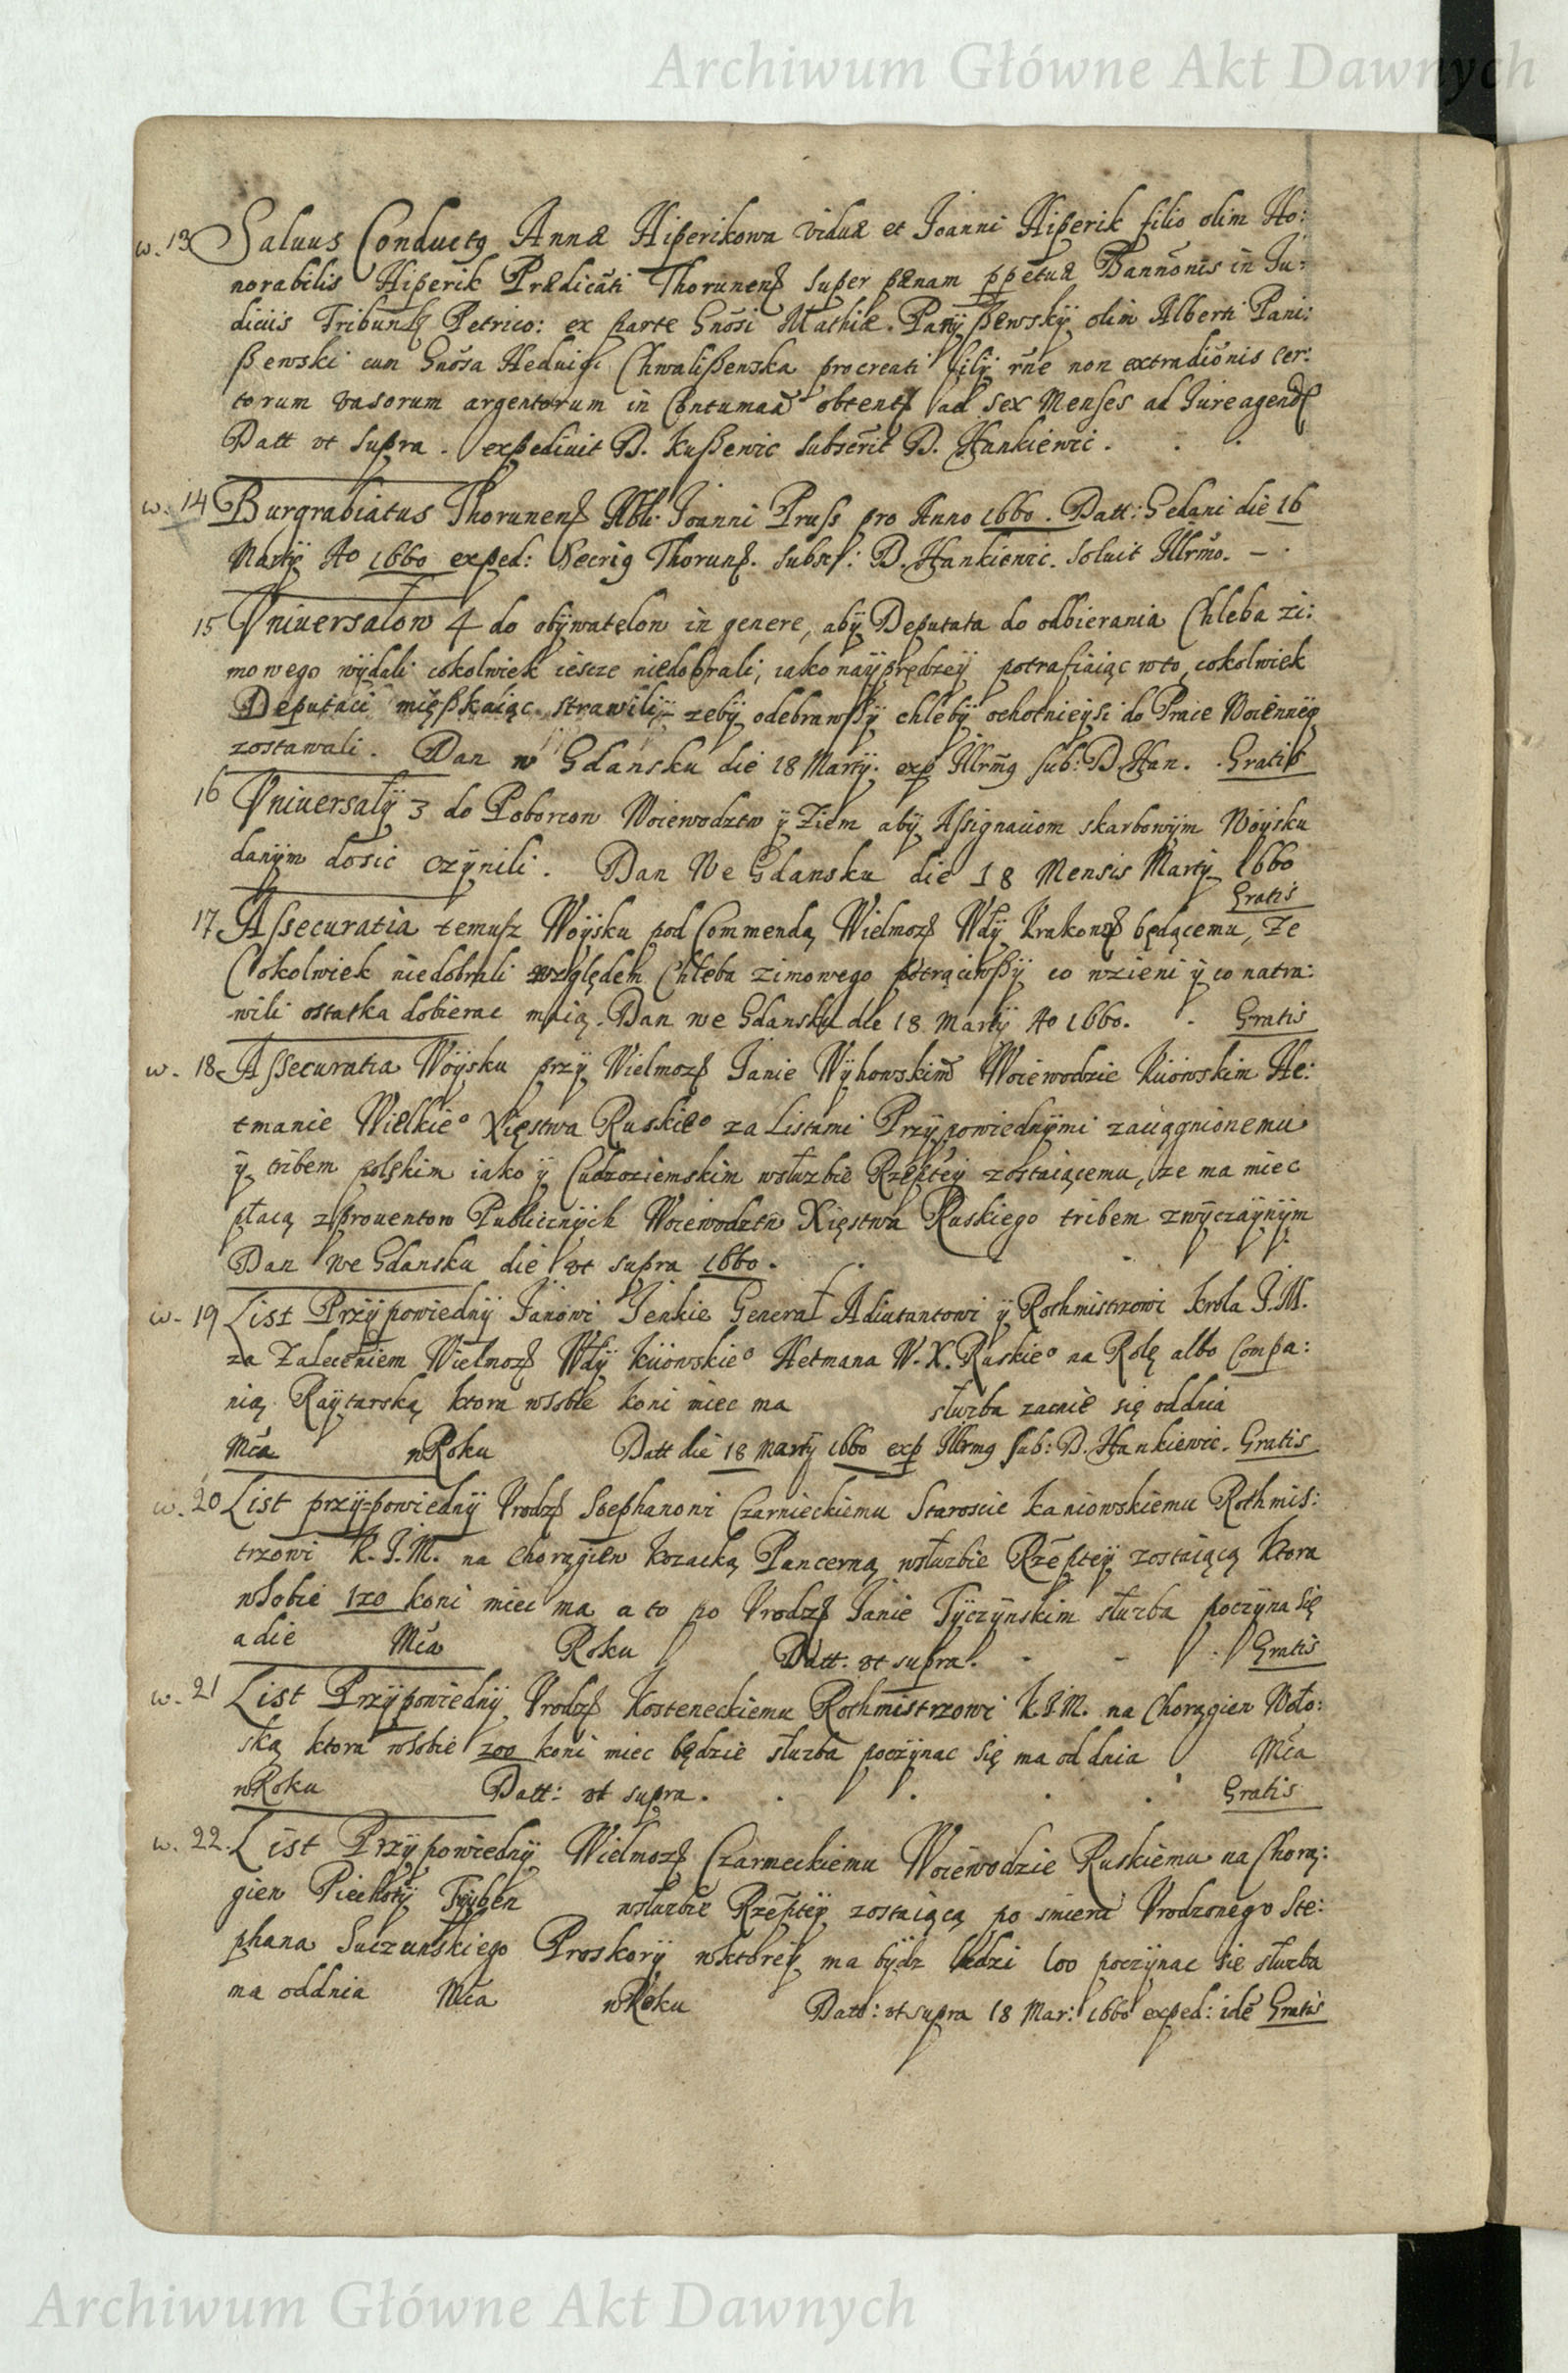 Archiwum Główne Akt Dawnych
w. 13 Saluus Conductq Annæ Hiperikowa viduæ et Joanni Hiperik filio olim Ho:
norabilis Hiperik Prædicāti Thorunenß super pænam ppetuæ Bannōnis in Ju:
diciis Tribunlß Petrico: ex parte Gnōsi Mathiæ Panÿßewskÿ olim Alberti Pani:
ßewski cum Gnōsa Heduigi Chwalißenska procreati filÿ rne non extradiōnis cer:
torum vasorum argentorum in Contumaā obtentß ad sex Menses ad Jure agendß
Datt vt supra. expediuit D. Kußewic subscrit D. Hankiewic.
w. 14 Burgrabiatus Thorunenß Joanni Pruss pro Anno 1660. Datt: Gedani die 16
Martÿ Ao 1660 exped: Secrig Thorunß. subsr: D. Hankiewic. soluit Illrmo.
15 Vniuersalow 4 do obÿwatelow in genere, abÿ Deputata do odbierania Chleba zi:
mowego wÿdali cokolwiek iescze niedobrali, iako naÿprędzeÿ potrafiaiąc wto, cokolwiek
Deputaci mięßkaiąc strawili, zebÿ odebrawßÿ chlebÿ ochotnieÿsi do Prace Woienneÿ
zostawali. Dan w Gdansku die 18 Martÿ. exp Illrmg sub: D. Han. Gratis
16 Vniuersalÿ 3 do Poborcow Woiewodztw ÿ Ziem abÿ Assignaciom skarbowÿm Woÿsku
danÿm dosic czÿnili. Dan We Gdansku die 18 Mensis Martÿ 1660
Gratis
17 Assecuratia temusz Woÿsku pod Commendą Wielmozß Wdÿ Krakowß będącemu, ze
Cokolwiek niedobrali względem Chleba zimowego potrąciwßÿ co wzieni ÿ co natra:
wili ostatka dobierac maią. Dan we Gdansku die 18 Martÿ Ao 1660. Gratis
w. 18 Assecuratia Woÿsku przÿ Wielmozß Janie Wÿhowskim Woiewodzie Kiiowskim He:
tmanie Wielkieo Xięstwa Ruskieo za Listami Przÿpowiednÿmi zaciągnionemu
ÿ tribem polskim iako ÿ Cudzoziemskim wsłuzbie Rzepteÿ zostaiącemu, ze ma miec
płacą z prouentow Publicznÿch Woiewodztw Xięstwa Ruskiego tribem zwÿczaÿnÿm
Dan we Gdansku die vt supra 1660.
w. 19 List Przÿpowiednÿ Janowi Jenkie Generał Adiutantowi ÿ Rothmistrzowi Krola J.M.
za Zaleceniem Wielmozß Wdÿ Kiiowskieo Hetmana W. X. Ruskieo na Rotę albo Compa:
nią Raÿtarską ktora wsobie koni miec ma słuzba zacnie się oddnia
Mca wRoku Datt die 18 Martÿ 1660 exp Illrmg sub: D. Hankiewic. Gratis
w. 20 List przÿpowiednÿ Vrodzß Stephanowi Czarnieckiemu Staroscie Kaniowskiemu Rothmis:
trzowi K. J. M. na chorągiew kozacką Pancerną wsłuzbie Rzeptÿ zostaiącą ktora
wsobie 120 koni miec ma a to po Vrodzß Janie Tÿczÿnskim słuzba poczÿna się
a die Mca Roku Datt. vt supra. Gratis
w. 21 List Przÿpowiednÿ Vrodzß Kosteneckiemu Rothmistrzowi K. J. M. na Chorągiew Woło:
ską ktora wsobie 200 koni miec będzie słuzba poczÿnac się ma od dnia Mca
wRoku Datt: vt supra. Gratis
w. 22. List Przÿpowiednÿ Wielmozß Czarneckiemu Woiewodzie Ruskiemu na Chorą:
giew Piechotÿ Trÿben wsłuzbie Rzeptÿ zostaiącą po smierci Vrodzonego Ste:
phana Suczanskiego Proskorÿ wktoreÿ ma bÿdz ludzi 100 poczÿnac sie słuzba
ma oddnia Mca wRoku Datt: vt supra 18 Mar: 1660 exped: idē Gratis
Archiwum Główne Akt Dawnych